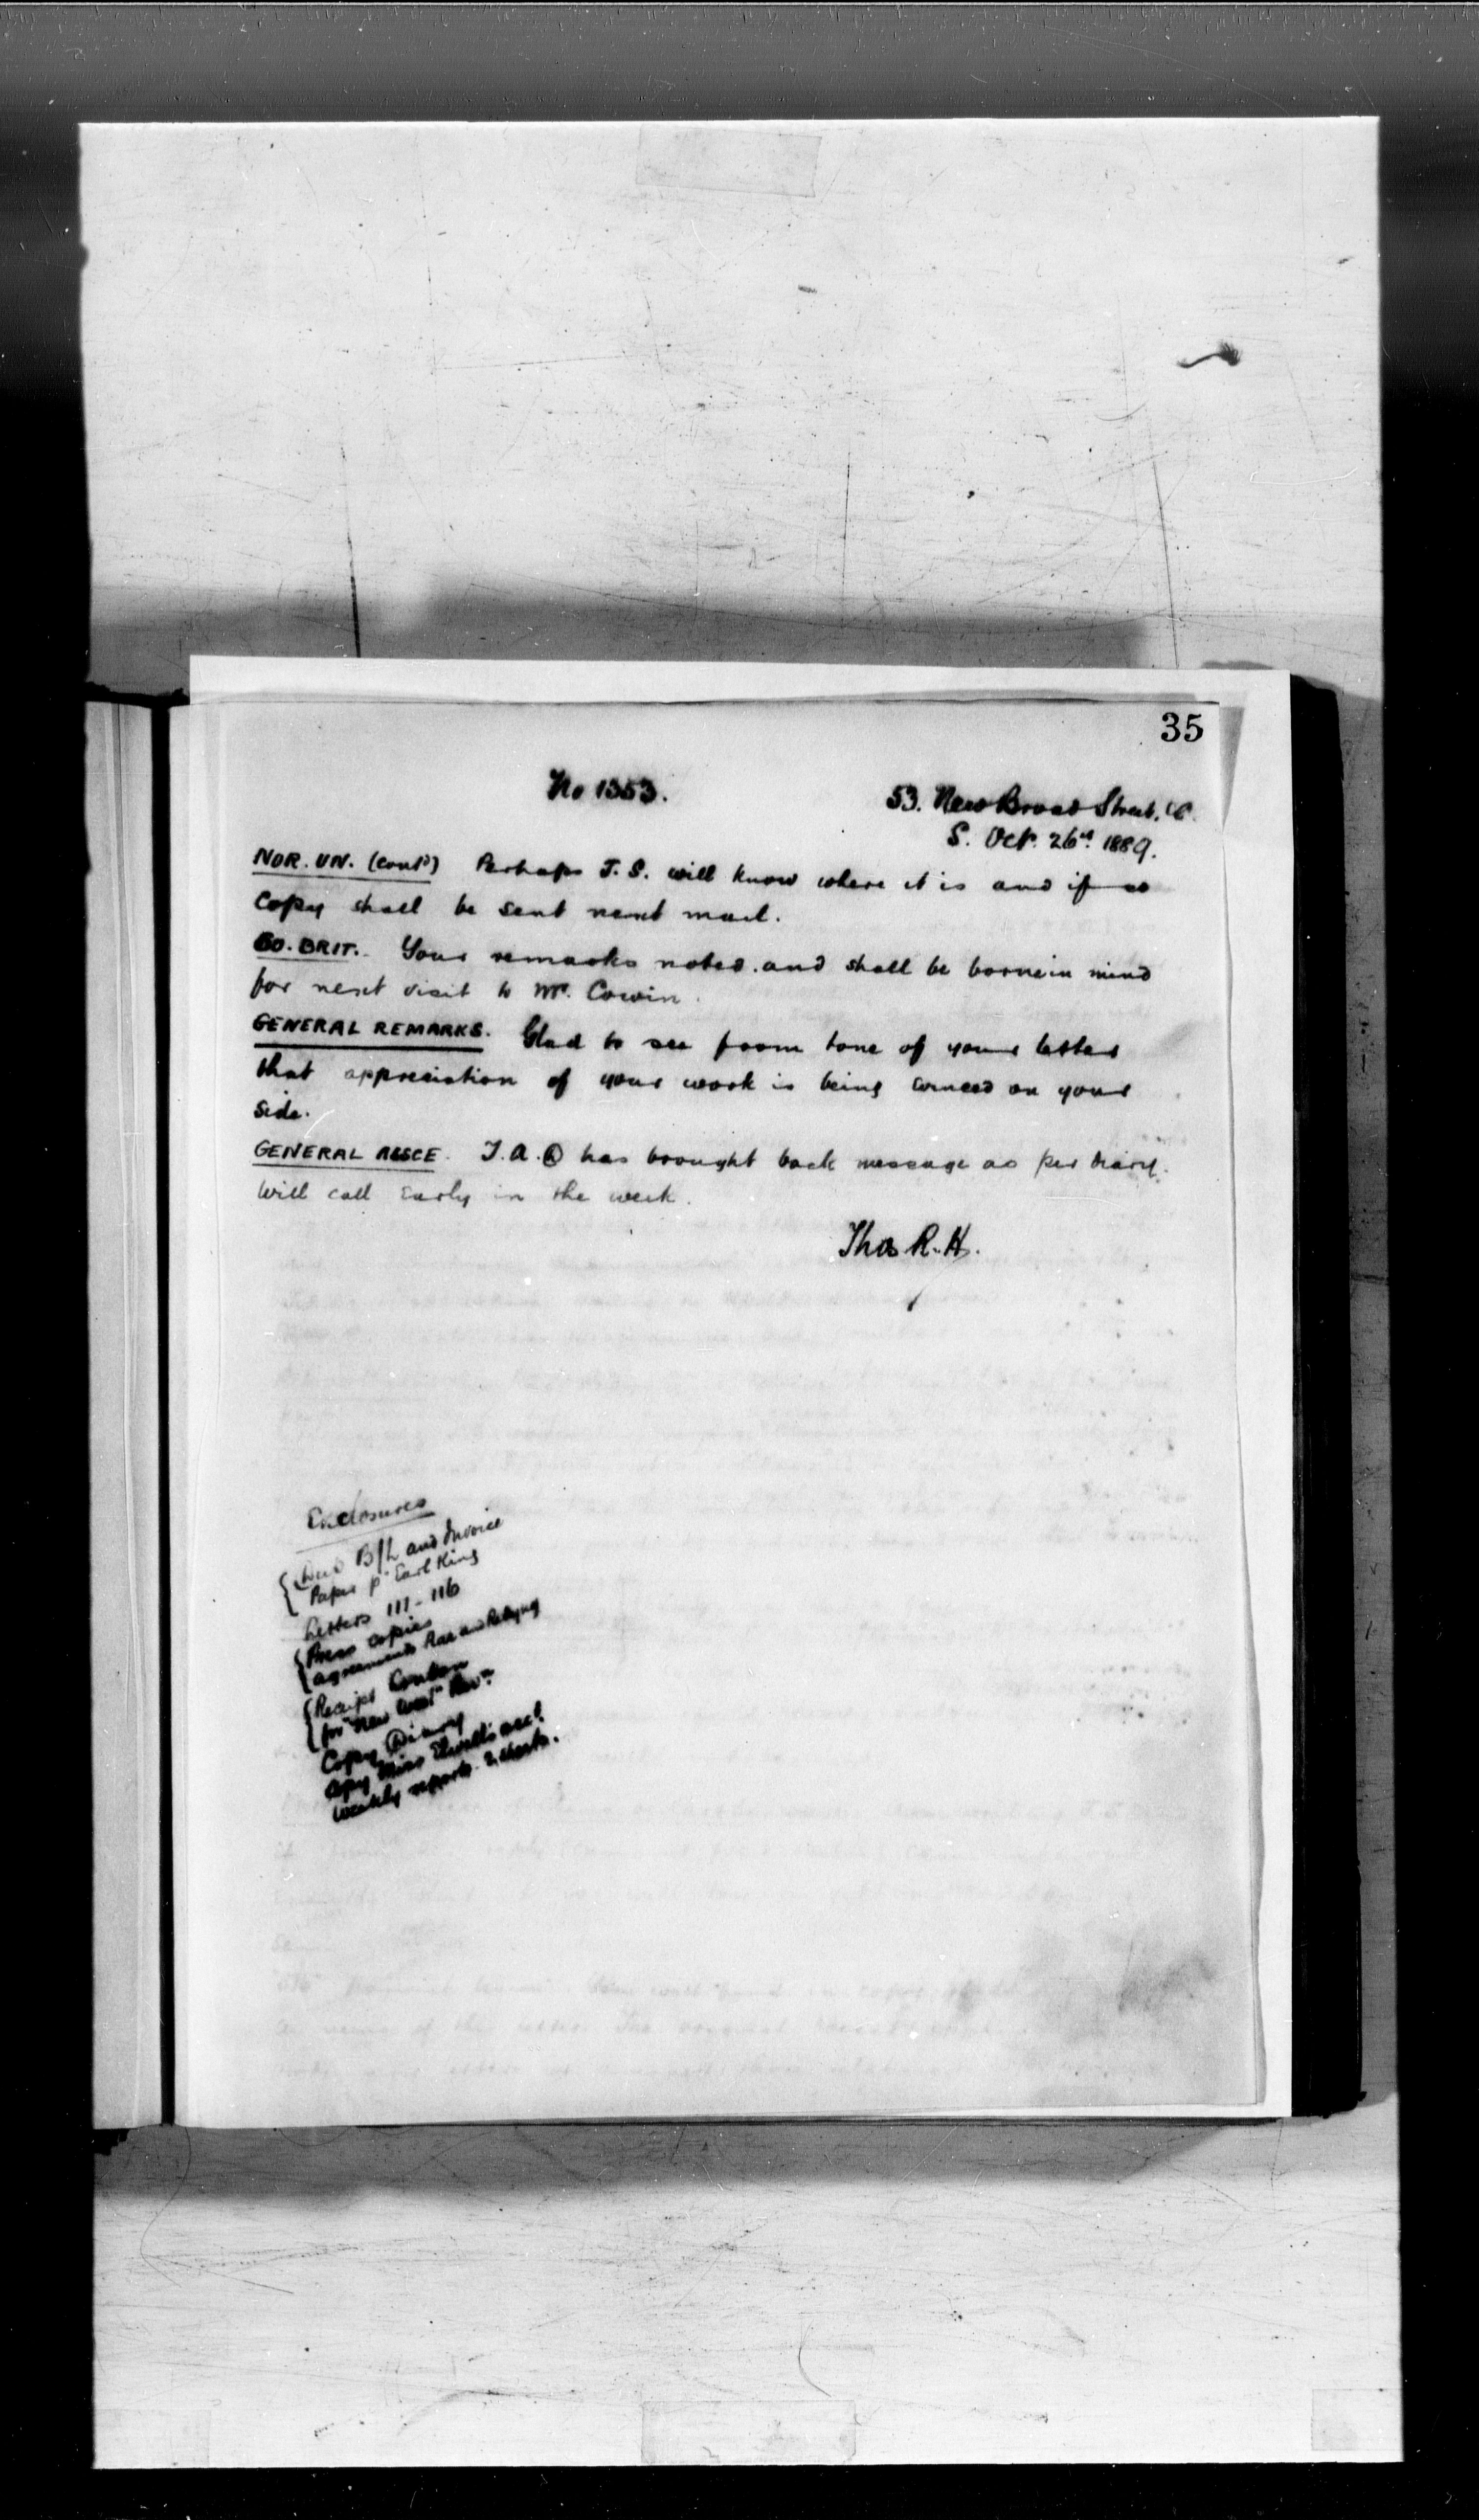 35
No 1353.
53. New Broad Street.
S. Oct. 26th 1889.
NOR. UN. (cont'd) Perhaps J. S. will know where it is and if so
Copy shall be sent next mail.
CO. BRIT. Your remarks noted and shall be borne in mind
for next visit to Mr. Cowin.
GENERAL REMARKS. Glad to see from tone of your letters
that appreciation of your work is being evinced on your
side.
GENERAL ASSCE. has brought back message as per Diary.
Will call early in the week.
Thos R. H.
Enclosures
B/L and Invoice
Paper p Earl King
Letters 111-116
Press copies
agreements and
Receipt
for "New West"
Copy Diary
Copy Miss acct.
Weekly reports. 2 sheets.